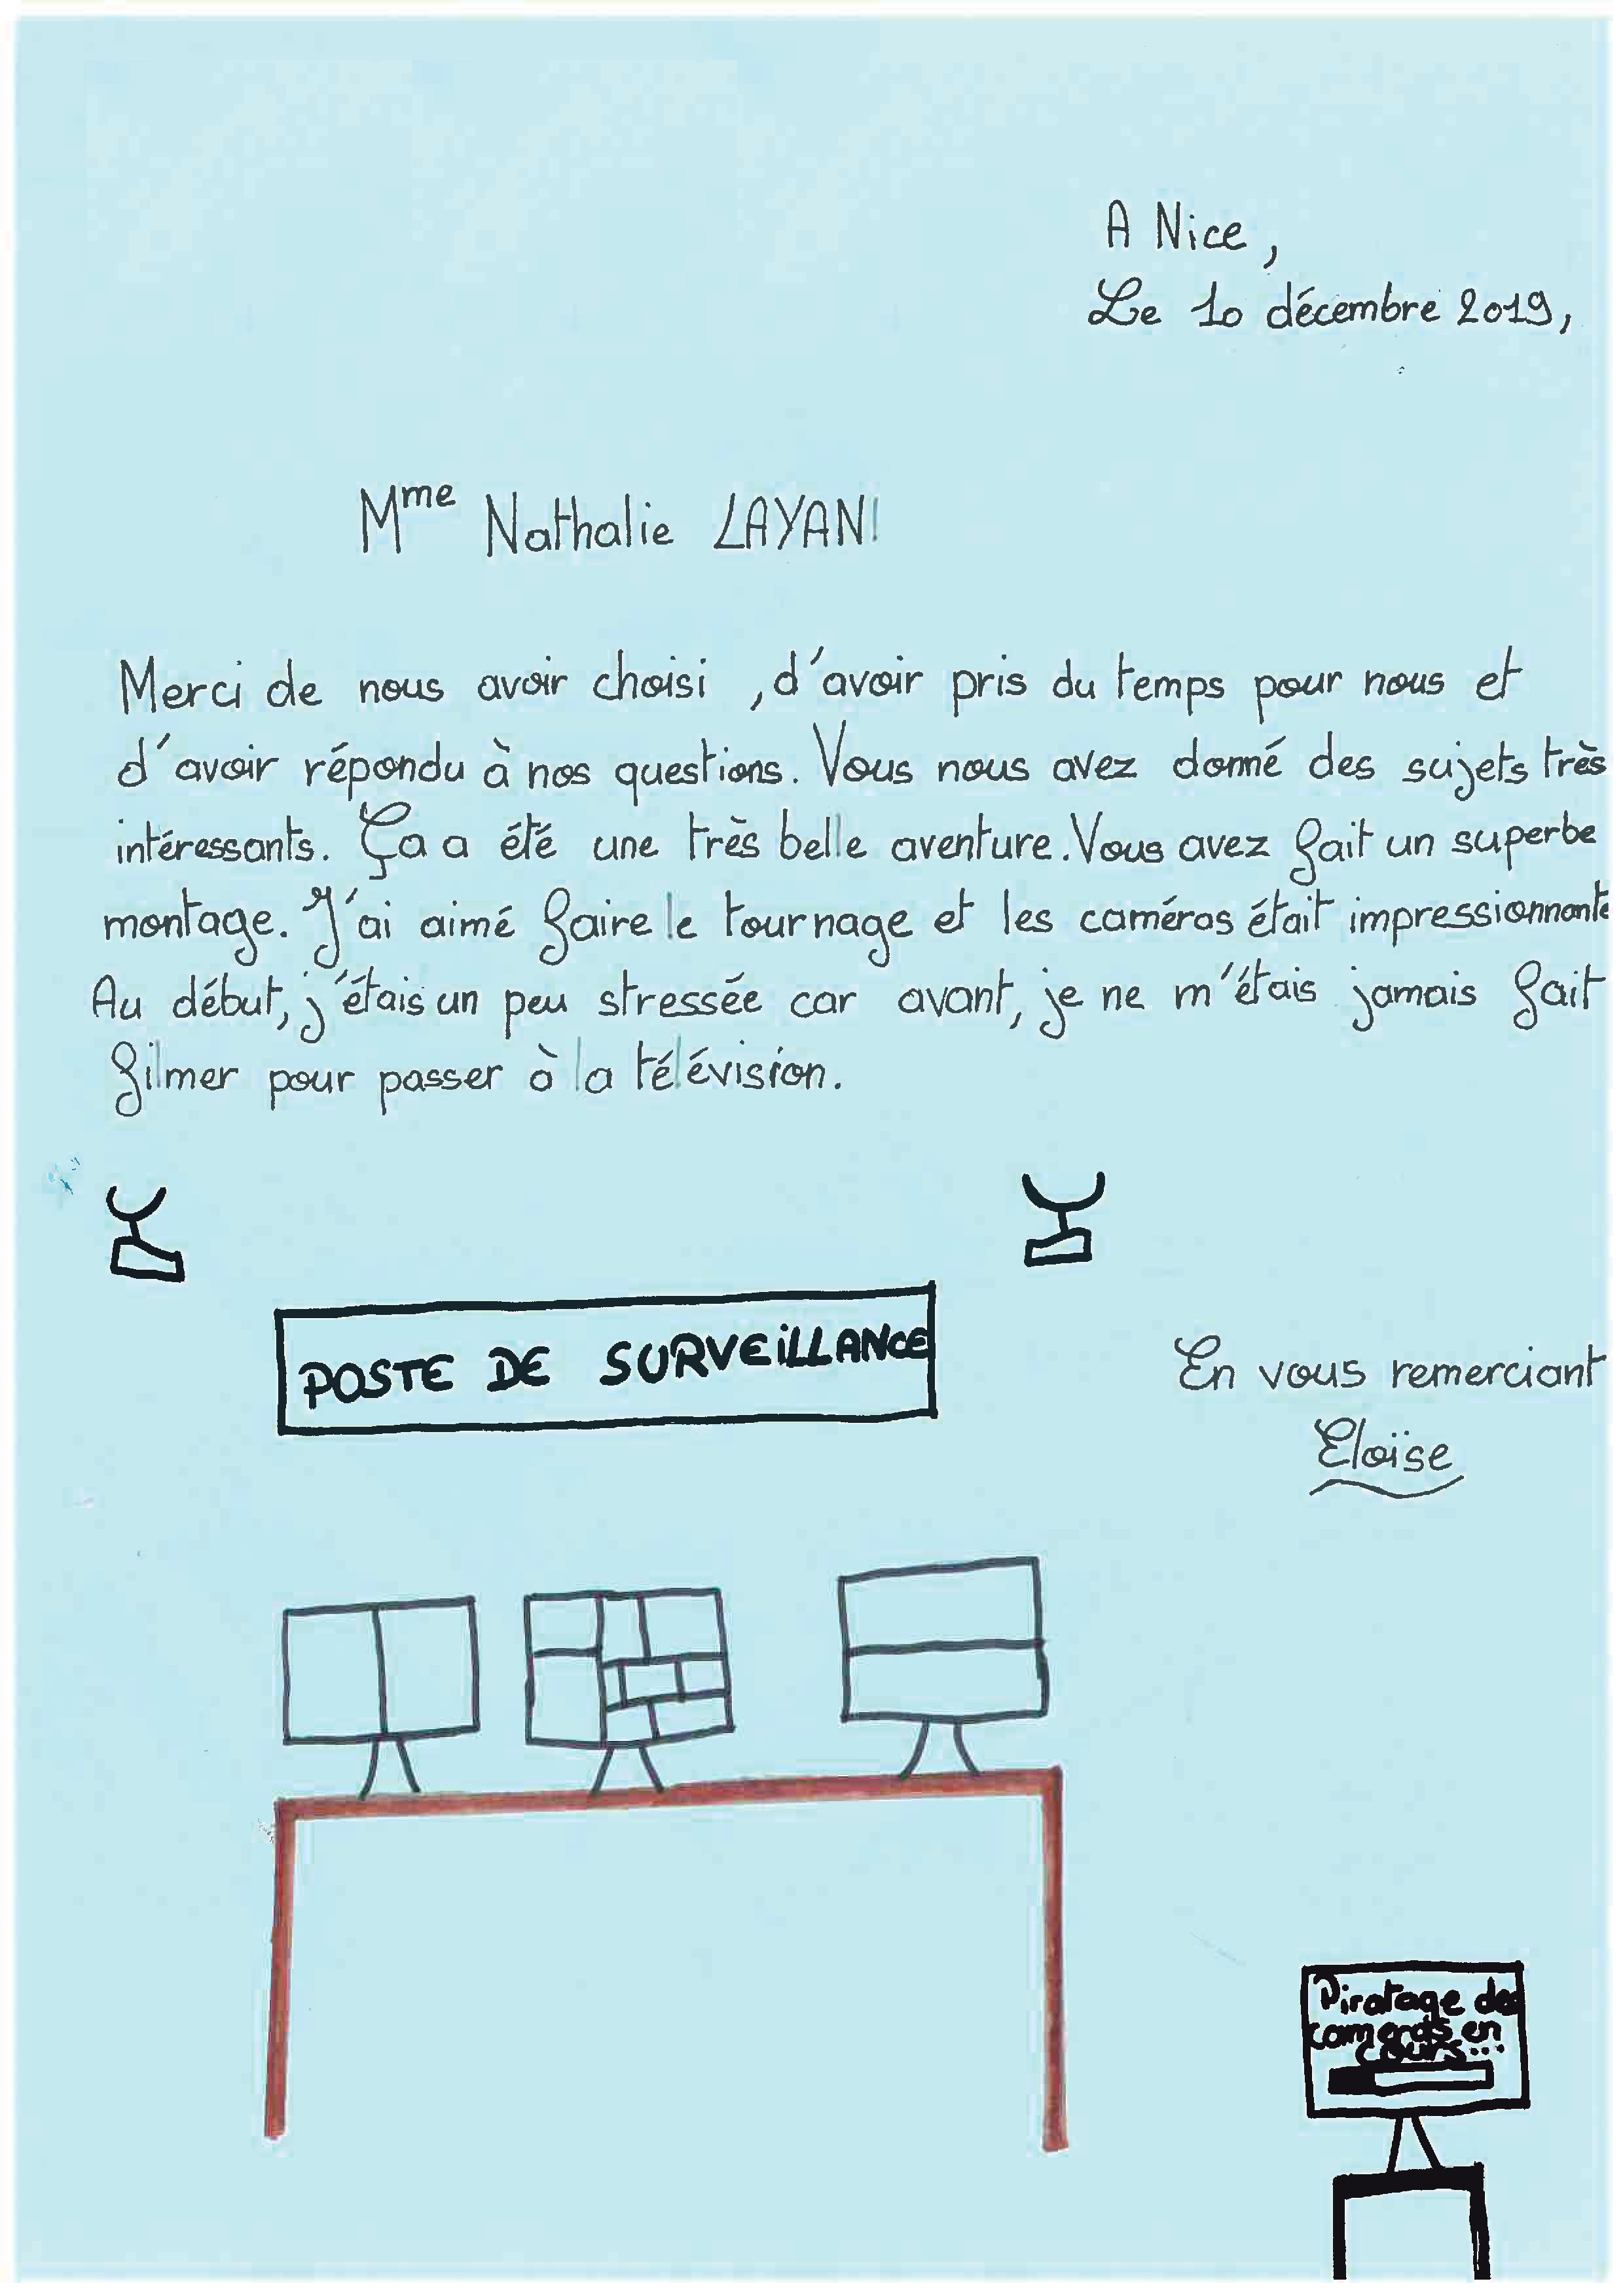 A Nice,
Le 10 décembre 2019,
Mme Nathalie LAYANI
Merci de nous avoir choisi, d'avoir pris du temps pour nous et
d'avoir répondu à nos questions. Vous nous avez donné des sujets très
intéressants. Ça a été une très belle aventure. Vous avez fait un superbe
montage. J'ai aimé faire le tournage et les caméras était impressionnante
Au début, j'étais un peu stressée car avant, je ne m'étais jamais fait
filmer pour passer à la télévision.
POSTE DE SURVEiLLANCE
En vous remerciant
Eloïse
Piratage des
cameras en
cours...